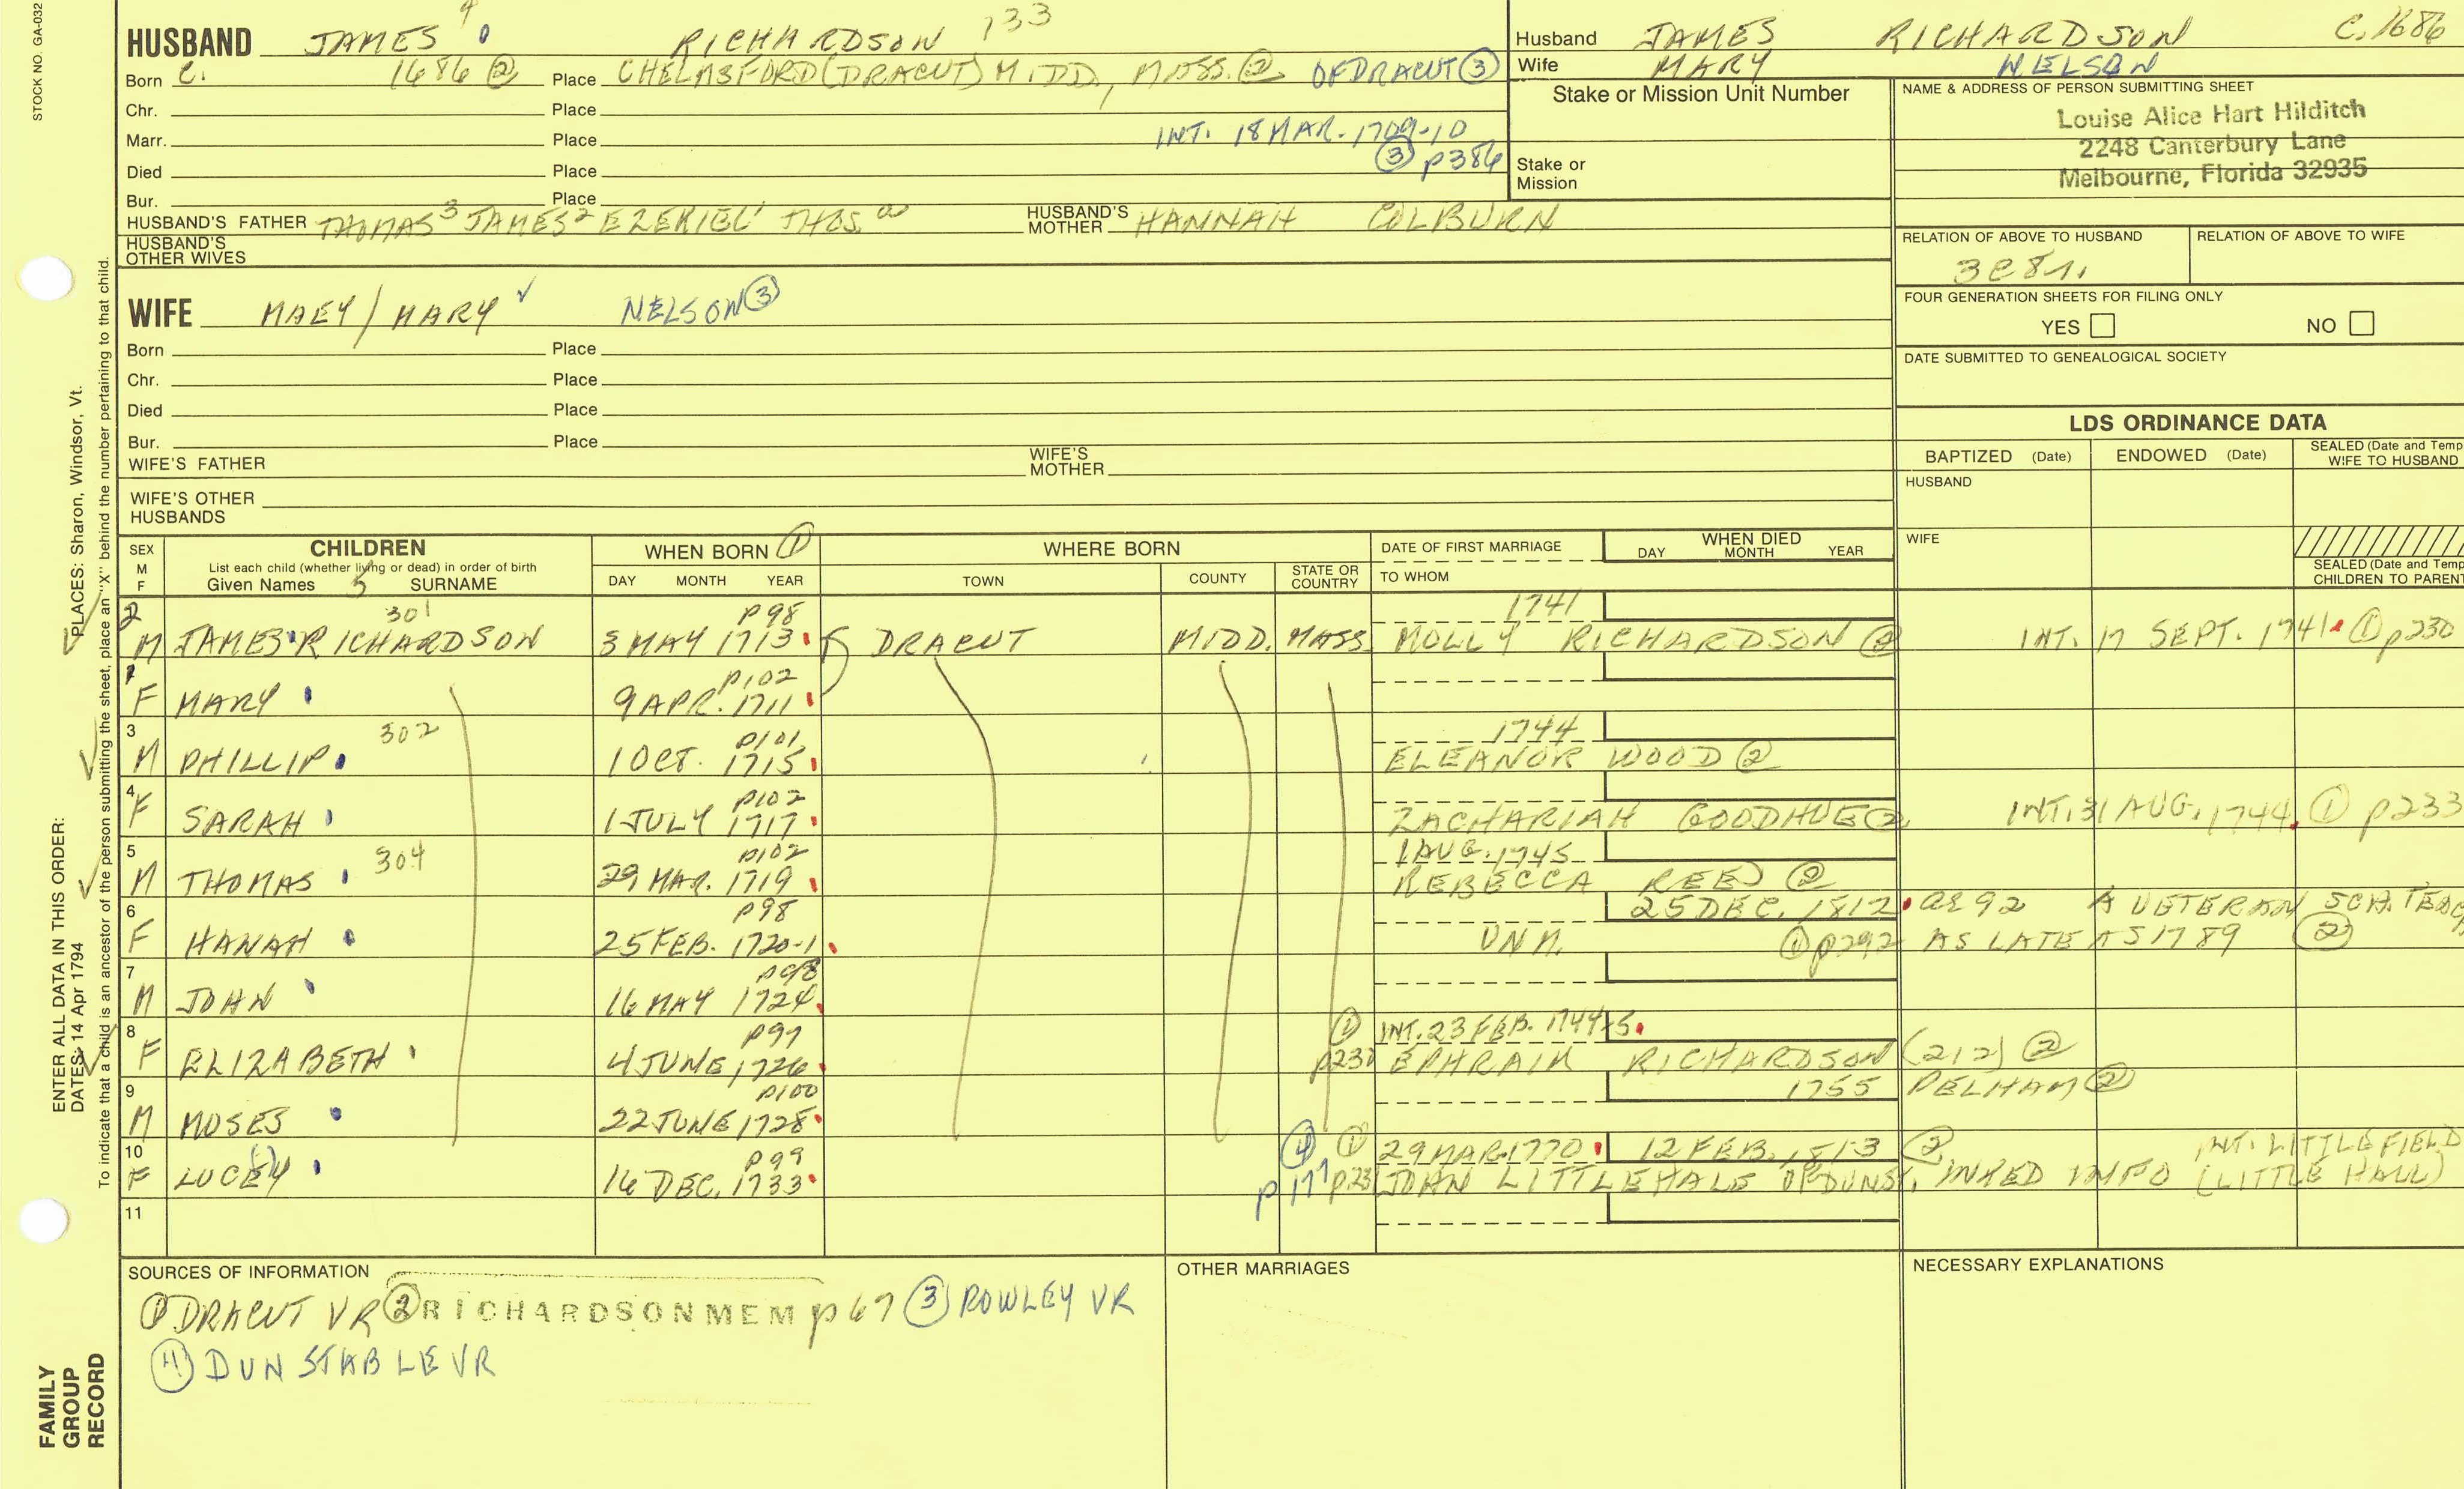 STOCK NO. GA-032
HUSBAND JAMES 4 RICHARDSON 133
Born C. 1686 ② Place CHELMSFORD (DRACUT) MIDD., MASS. ② OF DRACUT ③
Chr. Place
Marr. Place INT. 18 MAR. 1709-10
Died Place ③ p386
Bur. Place
HUSBAND'S FATHER THOMAS³ JAMES² EZEKIEL¹ THOS.
HUSBAND'S MOTHER HANNAH COLBURN
HUSBAND'S OTHER WIVES
WIFE MAEY / MARY ✓ NELSON ③
Born Place
Chr. Place
Died Place
Bur. Place
WIFE'S FATHER
WIFE'S MOTHER
WIFE'S OTHER HUSBANDS
Husband JAMES RICHARDSON C. 1686
Wife MARY NELSON
Stake or Mission Unit Number
Stake or Mission
NAME & ADDRESS OF PERSON SUBMITTING SHEET
Louise Alice Hart Hilditch
2248 Canterbury Lane
Melbourne, Florida 32935
RELATION OF ABOVE TO HUSBAND
3C8r.
RELATION OF ABOVE TO WIFE
FOUR GENERATION SHEETS FOR FILING ONLY
YES NO
DATE SUBMITTED TO GENEALOGICAL SOCIETY
LDS ORDINANCE DATA
BAPTIZED (Date) ENDOWED (Date) SEALED (Date and Temp
WIFE TO HUSBAND
HUSBAND
WIFE
SEALED (Date and Temp
CHILDREN TO PARENT
SEX M F
CHILDREN
List each child (whether living or dead) in order of birth
Given Names 5 SURNAME
WHEN BORN ①
DAY MONTH YEAR
WHERE BORN
TOWN COUNTY STATE OR COUNTRY
DATE OF FIRST MARRIAGE
TO WHOM
WHEN DIED
DAY MONTH YEAR
2 301 p98 1741
M JAMES RICHARDSON 3 MAY 1713 DRACUT MIDD. MASS. MOLLY RICHARDSON ② INT. 17 SEPT. 1741 ① p230
1 p102
F MARY 9 APR. 1711
3 302 p101 1744
M PHILLIP 1 OCT. 1715 ELEANOR WOOD ②
4 p102
F SARAH 1 JULY 1717 ZACHARIAH GOODHUE ② INT. 31 AUG. 1744 ① p233
5 304 p102 1 AUG. 1745
M THOMAS 29 MAR. 1719 REBECCA REED ②
6 p98 25 DEC. 1812 ae 92 A VETERAN SCH. TEAC
F HANAH 25 FEB. 1720-1 UNM. ① p292 AS LATE AS 1789 ②
7 p98
M JOHN 16 MAY 1724
8 p97 ① INT. 23 FEB. 1744-5
F ELIZABETH 4 JUNE 1726 p230 EPHRAIM RICHARDSON (212) ②
9 p100 1755 PELHAM ②
M MOSES 22 JUNE 1728
10 p99 ④ ① 29 MAR. 1770 12 FEB. 1813 ② INT. LITTLEFIELD
F LUCEY 16 DEC. 1733 p177 p23 JOHN LITTLEHALE OF DUNST. INKED INFO (LITTLE HALL)
11
SOURCES OF INFORMATION
① DRACUT VR ② RICHARDSON MEM p67 ③ ROWLEY VR
④ DUNSTABLE VR
OTHER MARRIAGES
NECESSARY EXPLANATIONS
ENTER ALL DATA IN THIS ORDER:
DATES: 14 Apr 1794 PLACES: Sharon, Windsor, Vt.
To indicate that a child is an ancestor of the person submitting the sheet, place an "X" behind the number pertaining to that child.
FAMILY
GROUP
RECORD